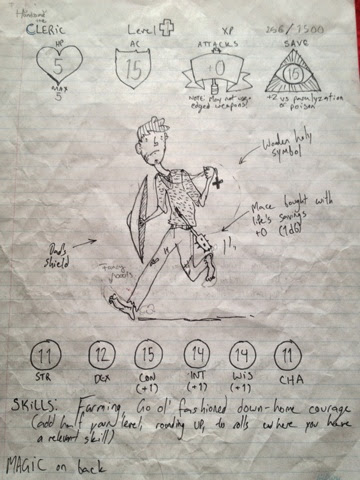 the
CLERIC
Level
XP
/ 1500
HP
5
MAX
5
AC
15
ATTACKS
+0
NOTE: May not use
edged weapons!
SAVE
15
+2 vs paralyzation
or poison
Wooden holy
symbol
Mace bought with
life's savings
+0 (1d6)
Dad's
shield
Fancy
pants
11
STR
12
DEX
15
CON
(+1)
14
INT
(+1)
14
WIS
(+1)
11
CHA
SKILLS: Farming, Go ol' fashioned down-home courage
(add half your level, rounding up, to rolls where you have
a relevant skill)
MAGIC on back